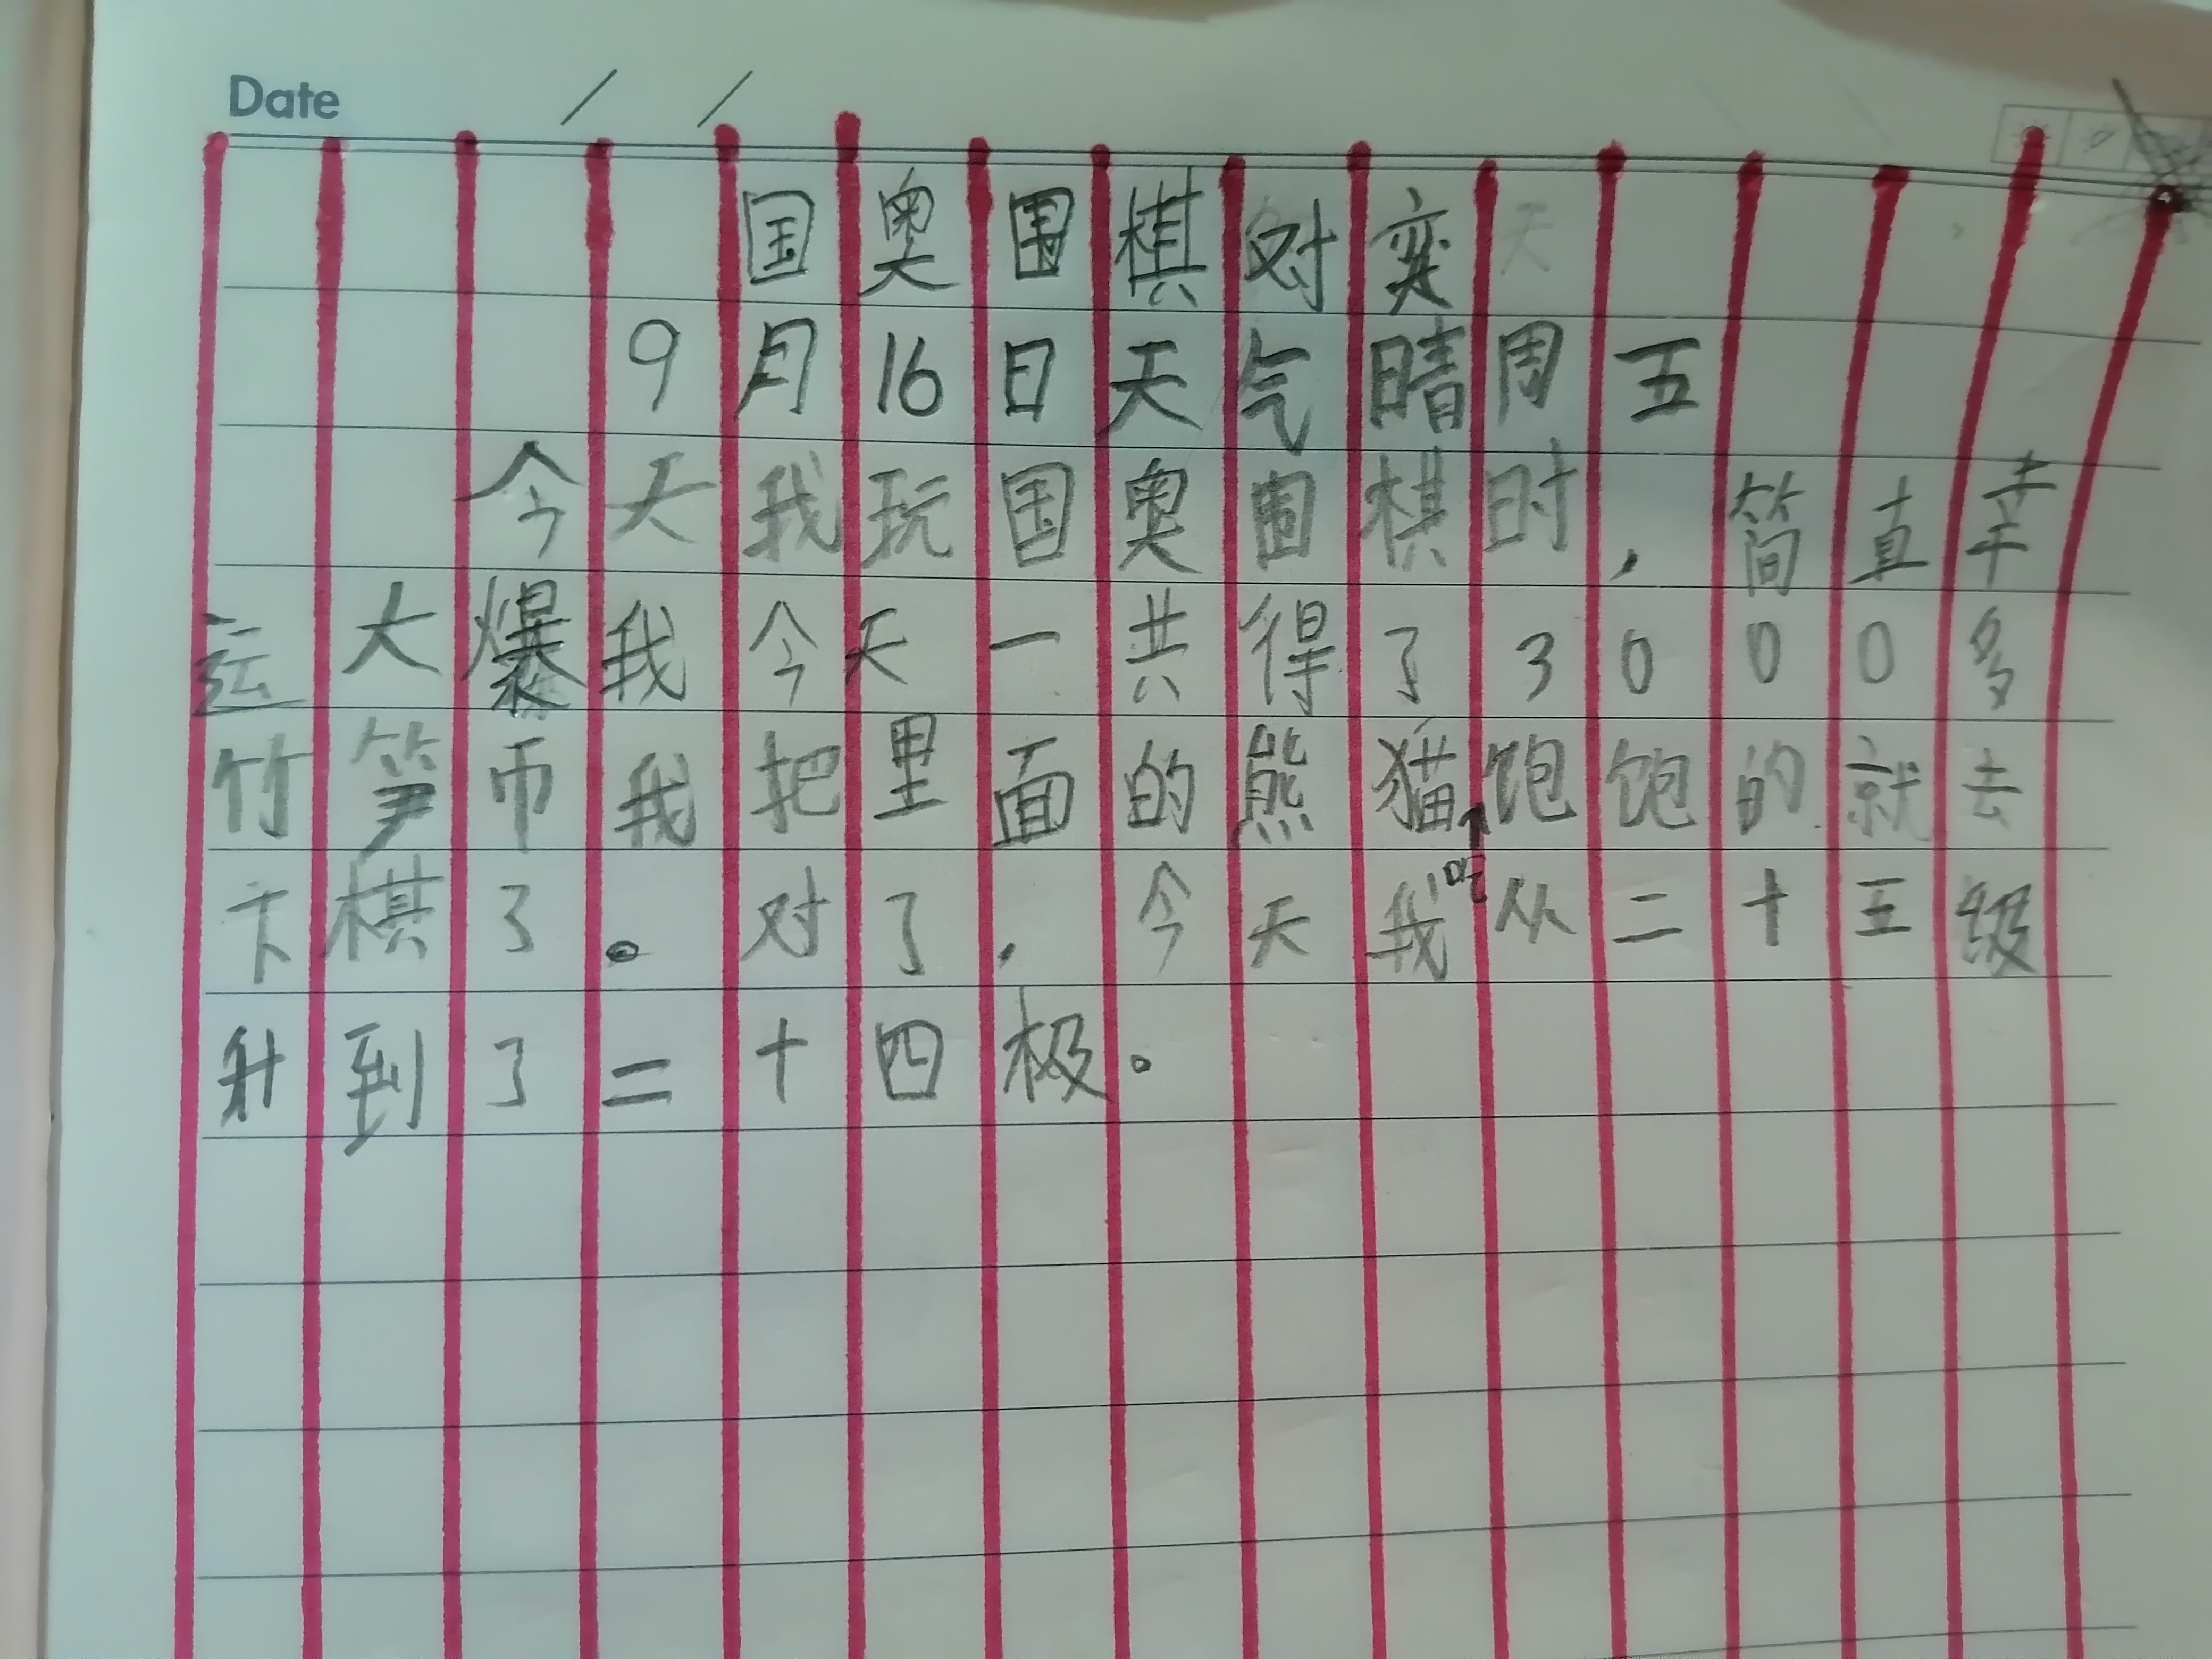 Date / /
国奥围棋对奕
9月16日天气晴周五
今天我玩国奥围棋时,简直幸
运大爆我今天一共得了3000多
竹笋币我把里面的熊猫吃饱饱的就去
下棋了。对了,今天我从二十五级
升到了二十四极。